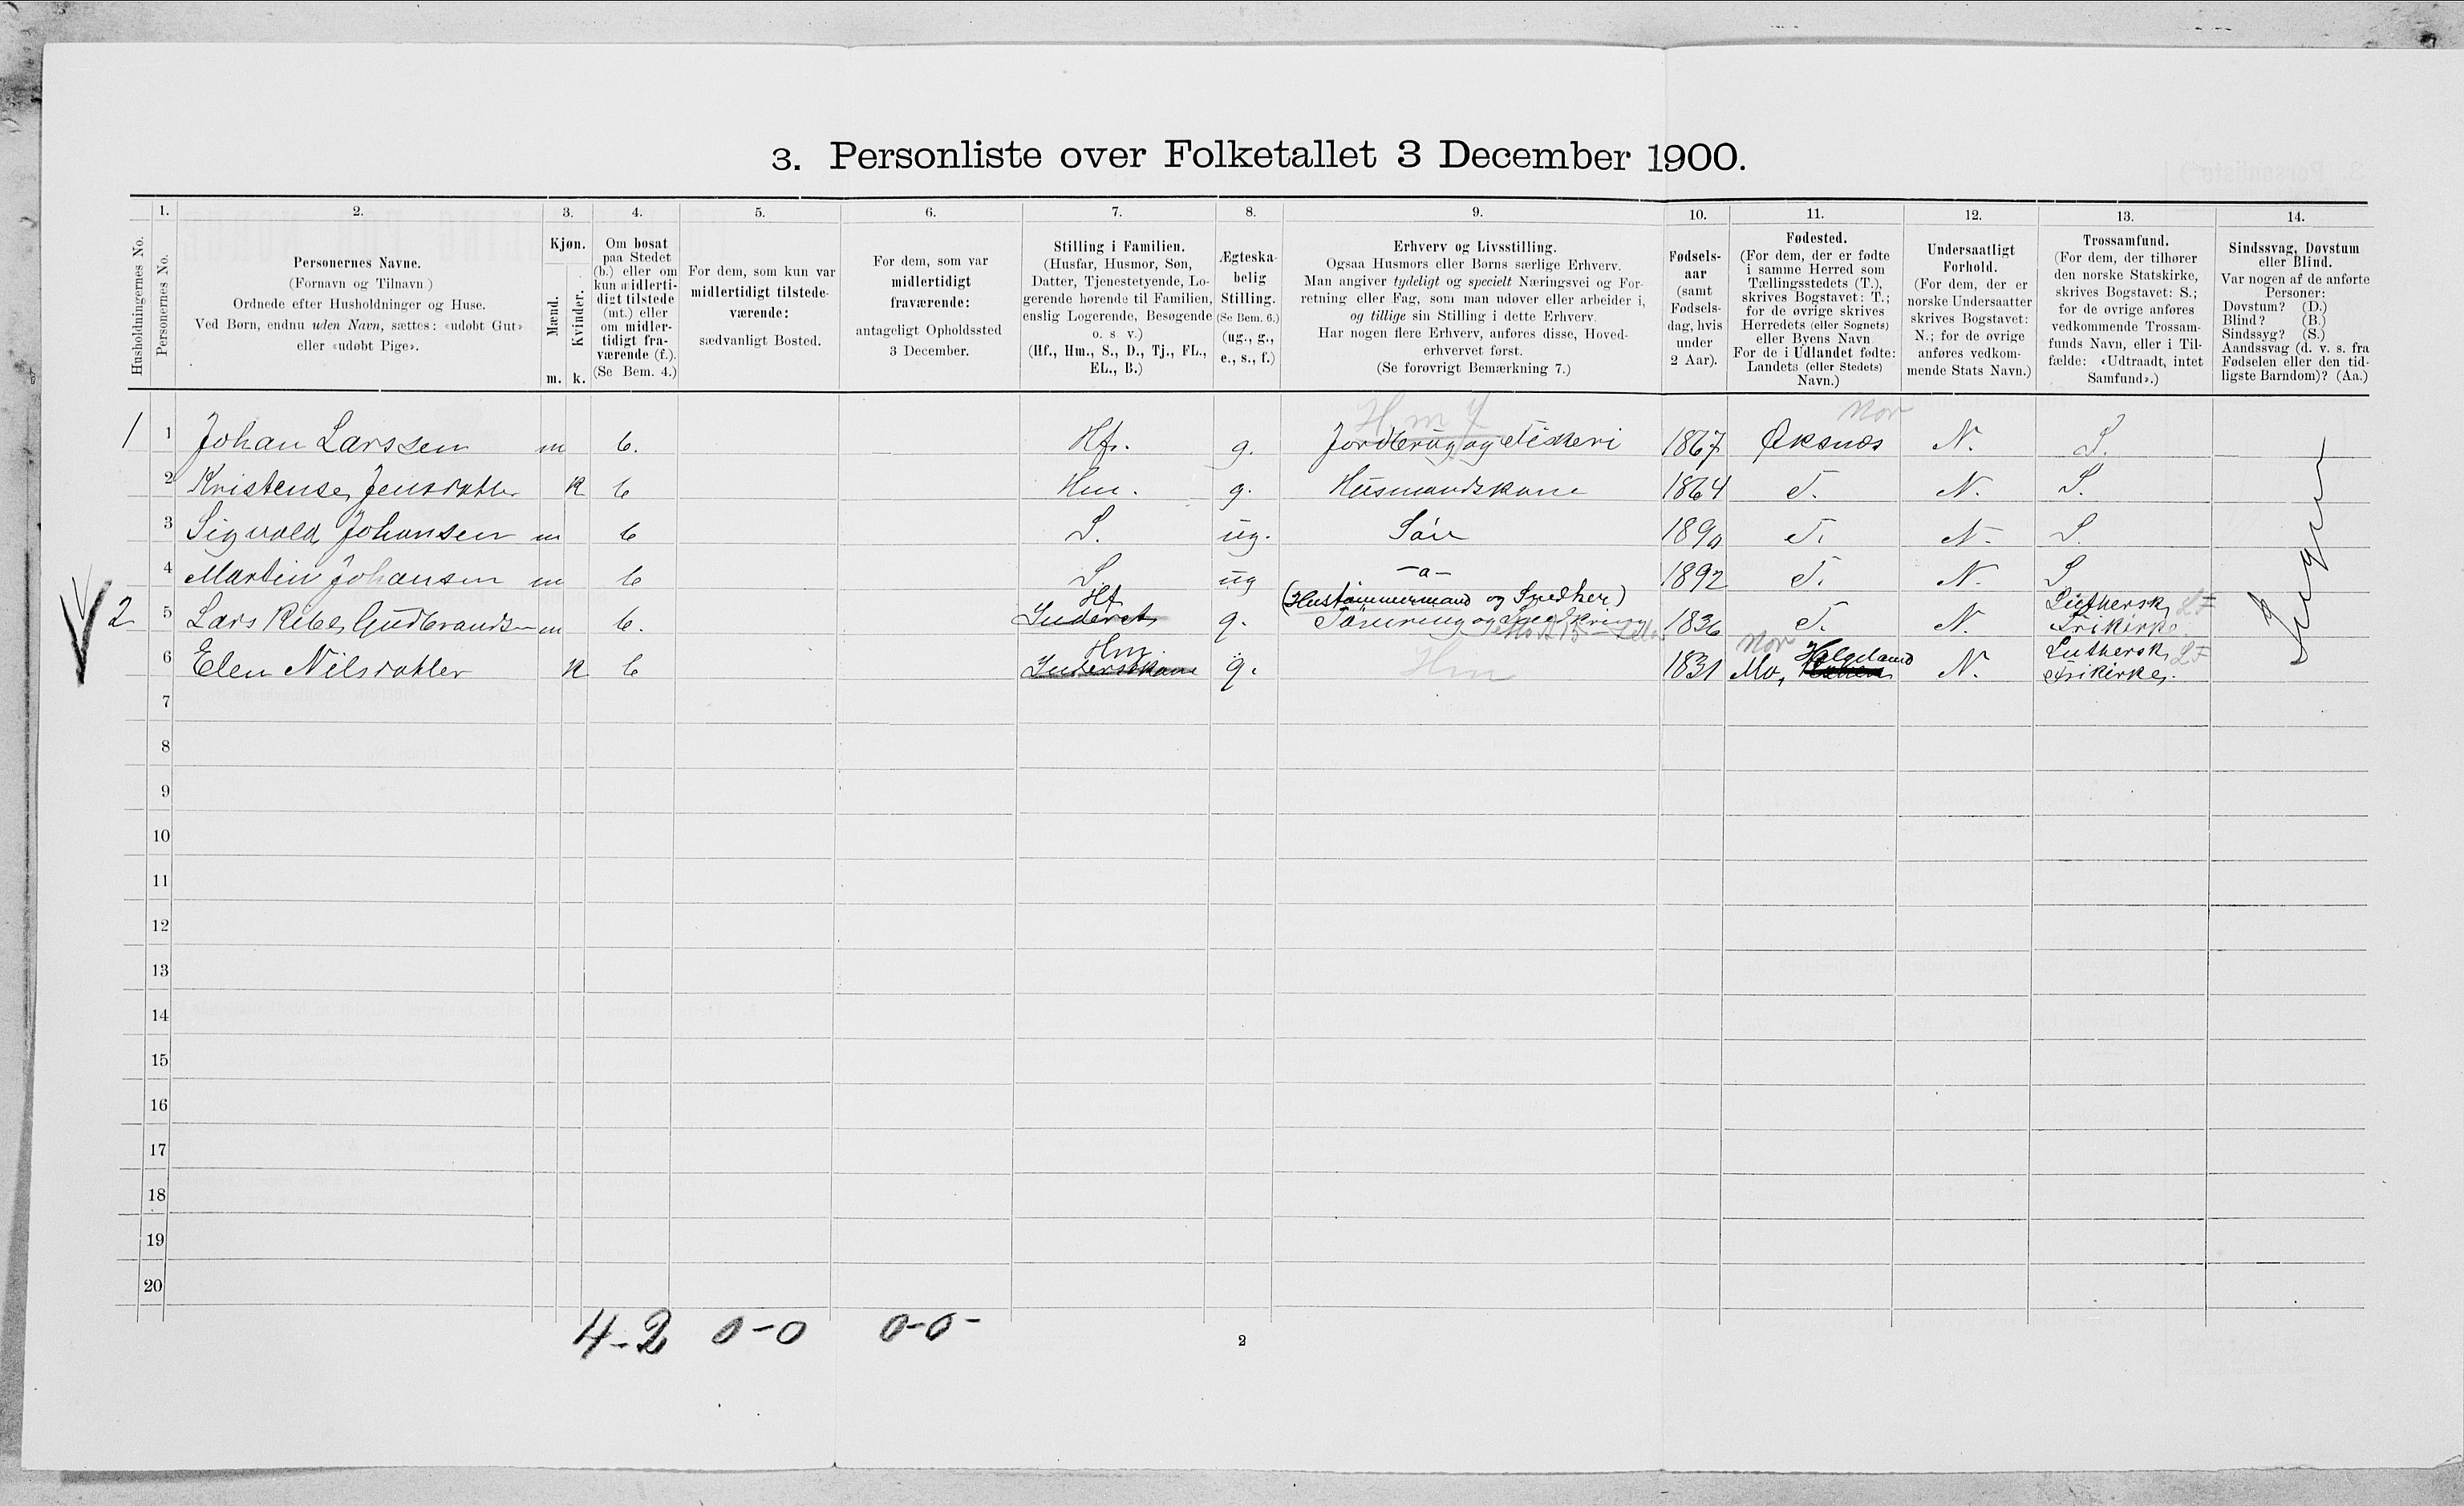 3. Personliste over Folketallet 3 December 1900.
1. 2. 3. 4. 5. 6. 7. 8. 9. 10. 11. 12. 13. 14.
Husholdningernes No.
Personernes No.
Personernes Navne.
(Fornavn og Tilnavn)
Ordnede efter Husholdninger og Huse.
Ved Børn, endnu uden Navn, sættes: «udøbt Gut»
eller «udøbt Pige».
Kjøn.
Mænd.
Kvinder.
m. k.
Om bosat
paa Stedet
(b.) eller om
kun midlerti-
digt tilstede
(mt.) eller
om midler-
tidigt fra-
værende (f.).
(Se Bem. 4.)
For dem, som kun var
midlertidigt tilstede-
værende:
sædvanligt Bosted.
For dem, som var
midlertidigt
fraværende:
antageligt Opholdssted
3 December.
Stilling i Familien.
(Husfar, Husmor, Søn,
Datter, Tjenestetyende, Lo-
gerende hørende til Familien,
enslig Logerende, Besøgende
o. s. v.)
(Hf., Hm., S., D., Tj., FL.,
EL., B.)
Ægteska-
belig
Stilling.
(Se Bem. 6.)
(ug., g.,
e., s., f.)
Erhverv og Livsstilling.
Ogsaa Husmors eller Børns særlige Erhverv.
Man angiver tydeligt og specielt Næringsvei og For-
retning eller Fag, som man udøver eller arbeider i,
og tillige sin Stilling i dette Erhverv.
Har nogen flere Erhverv, anføres disse, Hoved-
erhvervet først.
(Se forøvrigt Bemærkning 7.)
Fødsels-
aar
(samt
Fødsels-
dag, hvis
under
2 Aar).
Fødested.
(For dem, der er fødte
i samme Herred som
Tællingsstedets (T.),
skrives Bogstavet: T.;
for de øvrige skrives
Herredets (eller Sognets)
eller Byens Navn.
For de i Udlandet fødte:
Landets (eller Stedets)
Navn.)
Undersaatligt
Forhold.
(For dem, der er
norske Undersaatter
skrives Bogstavet:
N.; for de øvrige
anføres vedkom-
mende Stats Navn.)
Trossamfund.
(For dem, der tilhører
den norske Statskirke,
skrives Bogstavet: S.;
for de øvrige anføres
vedkommende Trossam-
funds Navn, eller i Til-
fælde: «Udtraadt, intet
Samfund».)
Sindssvag, Døvstum
eller Blind.
Var nogen af de anførte
Personer:
Døvstum? (D.)
Blind? (B.)
Sindssyg? (S.)
Aandssvag (d. v. s. fra
Fødselen eller den tid-
ligste Barndom)? (Aa.)
Hm Nor
1 1 Johan Larssen m b. Hfr. g. Jordbrug og Fiskeri 1867 Øksnæs N. S.
2 Kristense Jensdatter k b Hm. g. Husmandskone 1864 T. N. S.
3 Sigvald Johansen m b S. ug. Søn 1890 T. N. S.
4 Martin Johansen m b S. ug -a- 1892 T. N. S
Hf (Hustømmermand og Snedker) Luthersk LF
2 5 Lars Ribe Gudbrands m b. Inderst g. Tømring og Snedkring 1836 T. N. Frikirke
Hm. Nor Helgeland Luthersk LF
6 Elen Nilsdatter k b Inderstkone g. Hm 1831 Mo, N. Frikirke.
Ingen
7
8
9
10
11
12
13
14
15
16
17
18
19
20
4-2 0-0 0-0-
2